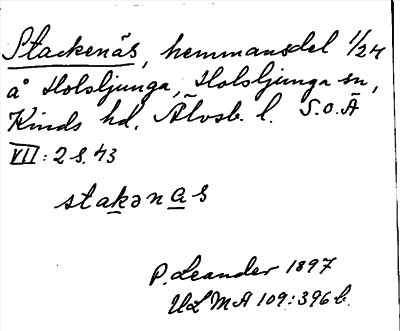 Stackenäs, hemmansdel 1/24
å Holsljunga, Holsljunga sn,
Kinds hd. Älvsb. l. S.O.Ä
VII: 2 s. 43
stakənas
P. Leander 1897
ULMA 109:396 b.